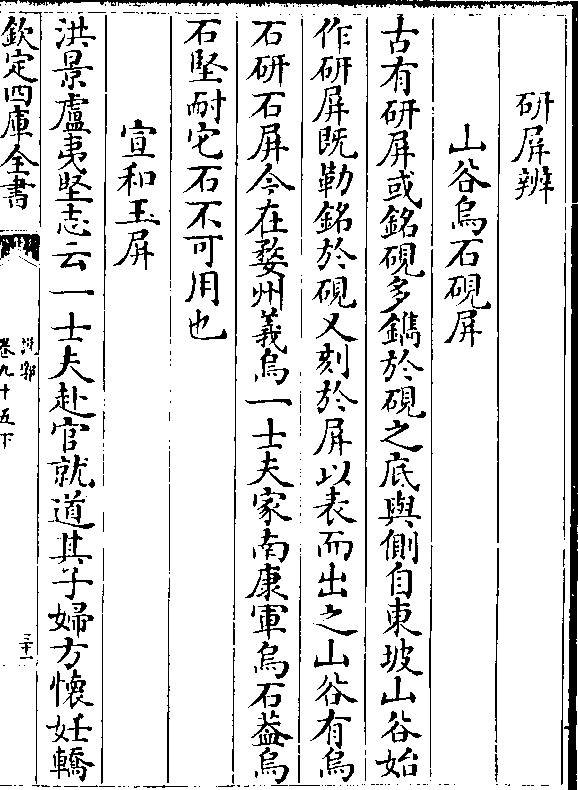 研屏辨
山谷烏石硯屏
古有研屏或銘硯多鐫於硯之底與側自東坡山谷始
作研屏既勒銘於硯又刻於屏以表而出之山谷有烏
石研石屏今在婺州義烏一士夫家南康軍烏石葢烏
石堅耐它石不可用也
宣和玉屏
洪景盧夷堅志云一士夫赴官就道其子婦方懷妊轎
欽定四庫全書
說郛
卷九十五下
三十一